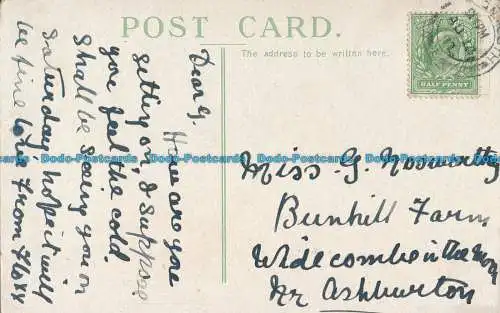 POST CARD.
The address to be written here.
HALF PENNY
Dear G. How are you
getting on, I suppose
you feel the cold.
Shall be seeing you on
Saturday, hope it will
be fine love from
Miss. G. Nosworthy
Bunhill Farm
Widecombe in the Moor
Nr Ashburton
Dodo-Postcards Dodo-Postcards Dodo-Postcards Dodo-Postcards Dodo-Postcards